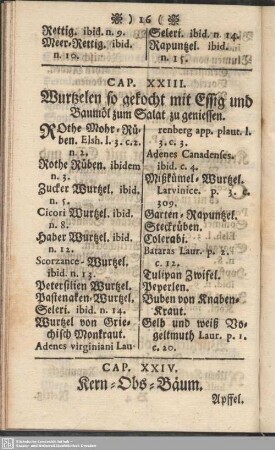 ❀ ) 16 ( ❀
Rettig. ibid. n. 9.
Meer-Rettig. ibid.
n. 10.
Seleri. ibid. n 14.
Rapuntzel. ibid.
n. 15.
CAP. XXIII.
Wurtzelen so gekocht mit Essig und
Baumöl zum Salat zu geniessen.
ROthe Mohr-Rü-
ben. Elsh. l. 3. c. 2.
n 2.
Rothe Rüben. ibidem
n 3.
Zucker Wurtzel. ibid.
n 5.
Cicori Wurtzel. ibid.
n 8.
Haber Wurtzel ibid.
n 12.
Scorzance-Wurtzel.
ibid. n. 13.
Petersilien Wurtzel.
Pastenaken-Wurtzel.
Seleri. ibid. n. 14.
Wurtzel von Grie-
chisch Monkraut.
Adenes virginiani Lau-
renberg app. plant. l.
3. c. 3.
Adenes Canadenses.
ibid. c. 4.
Mißkümel-Wurtzel.
Larvinice. p. 3. c.
309.
Garten-Rapuntzel.
Steckrüben.
Colerabi.
Bataras Laur. p. 2.
c. 12.
Tulipan Zwifel.
Peperlen.
Buben von Knaben-
Kraut.
Gelb und weiß Vo-
geltmuth Laur. p. 1.
c. 20.
CAP. XXIV.
Kern-Obs-Bäum.
Apffel.